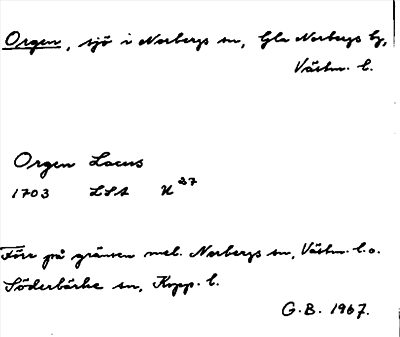 Orgen, sjö i Norbergs sn, Gla Norbergs bg,
Västm. l.
Orgen Lacus
1703 LSA U 37
Förr på gränsen mel. Norbergs sn, Västm. l. o.
Söderbärke sn, Kopp. l.
G.B. 1967.